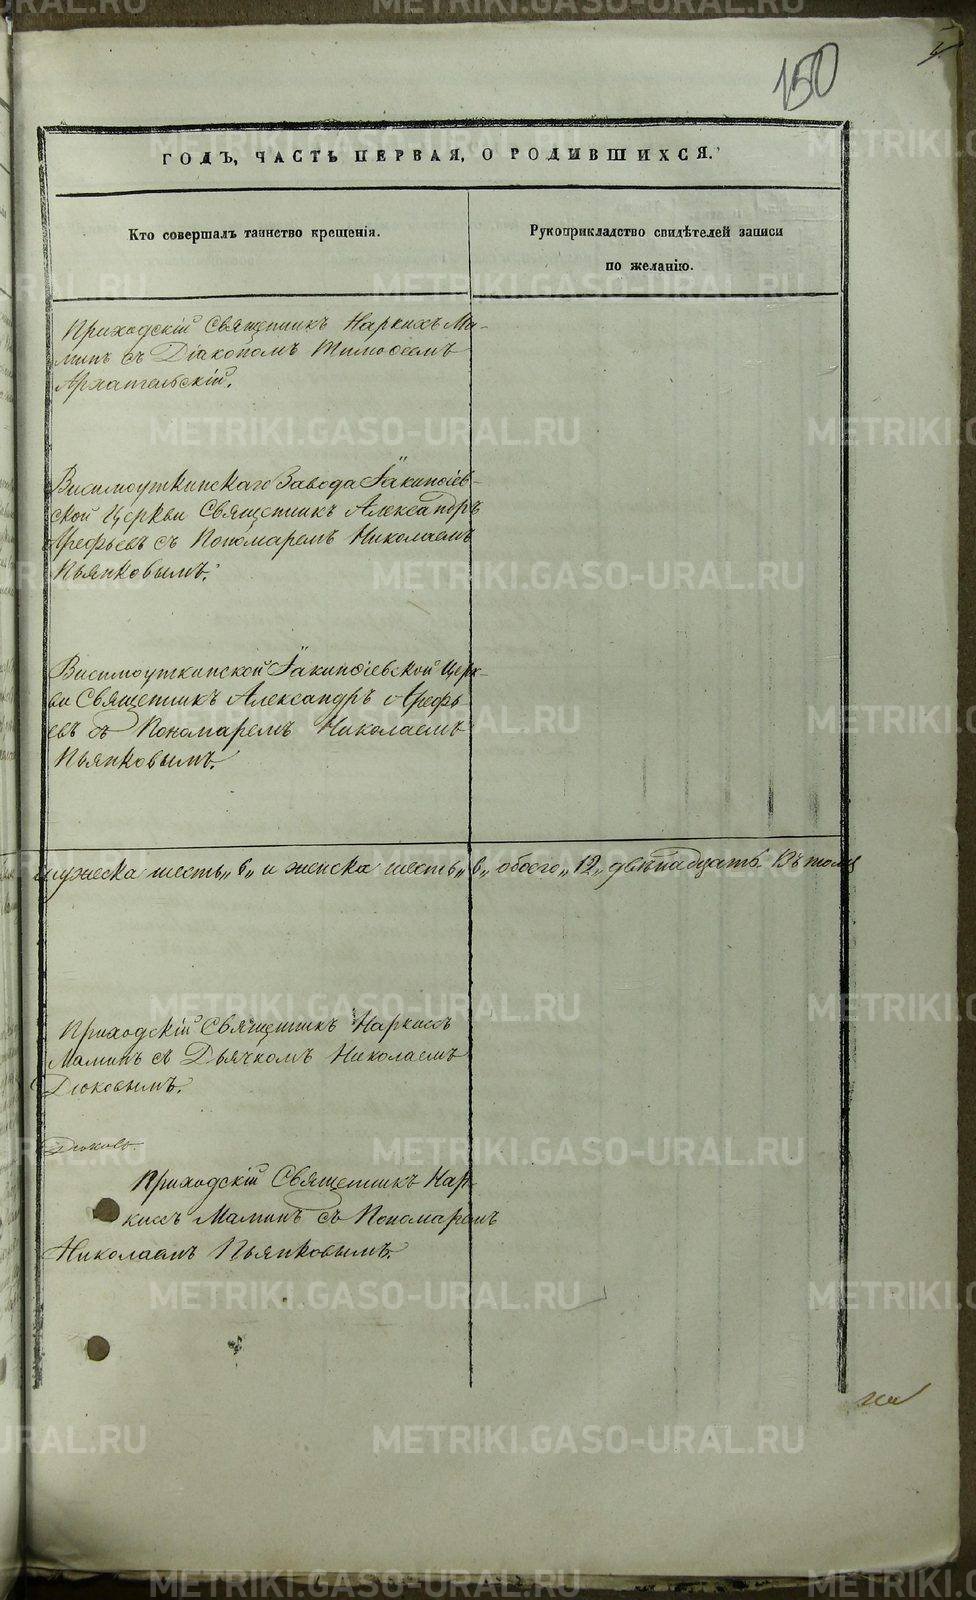 150
ГОДЪ, ЧАСТЬ ПЕРВАЯ, О РОДИВШИХСЯ.
Кто совершалъ таинство крещенія.
Рукоприкладство свидѣтелей записи
по желанію.
Приходскій Священникъ Наркисъ Ма-
минъ съ Діакономъ Тимоѳеемъ
Архангельскій.
Висимоуткинскаго Завода Іакинѳіев-
ской Церкви Священникъ Александръ
Арефьевъ съ Пономаремъ Николаемъ
Пьянковымъ.
Висимоуткинской Іакинѳіевской Церк-
ви Священникъ Александръ Арефь
евъ съ Пономаремъ Николаемъ
Пьянковымъ.
мужеска шесть „6„ и женска шесть „6„ обоего „12„ двѣнадцать. Въ томъ
Приходскій Священникъ Наркисъ
Маминъ съ Дьячкомъ Николаемъ
Дюковымъ.
Дюковъ.
Приходскій Священникъ Нар-
кисъ Маминъ съ Пономаремъ
Николаемъ Пьянковымъ.
METRIKI.GASO-URAL.RU